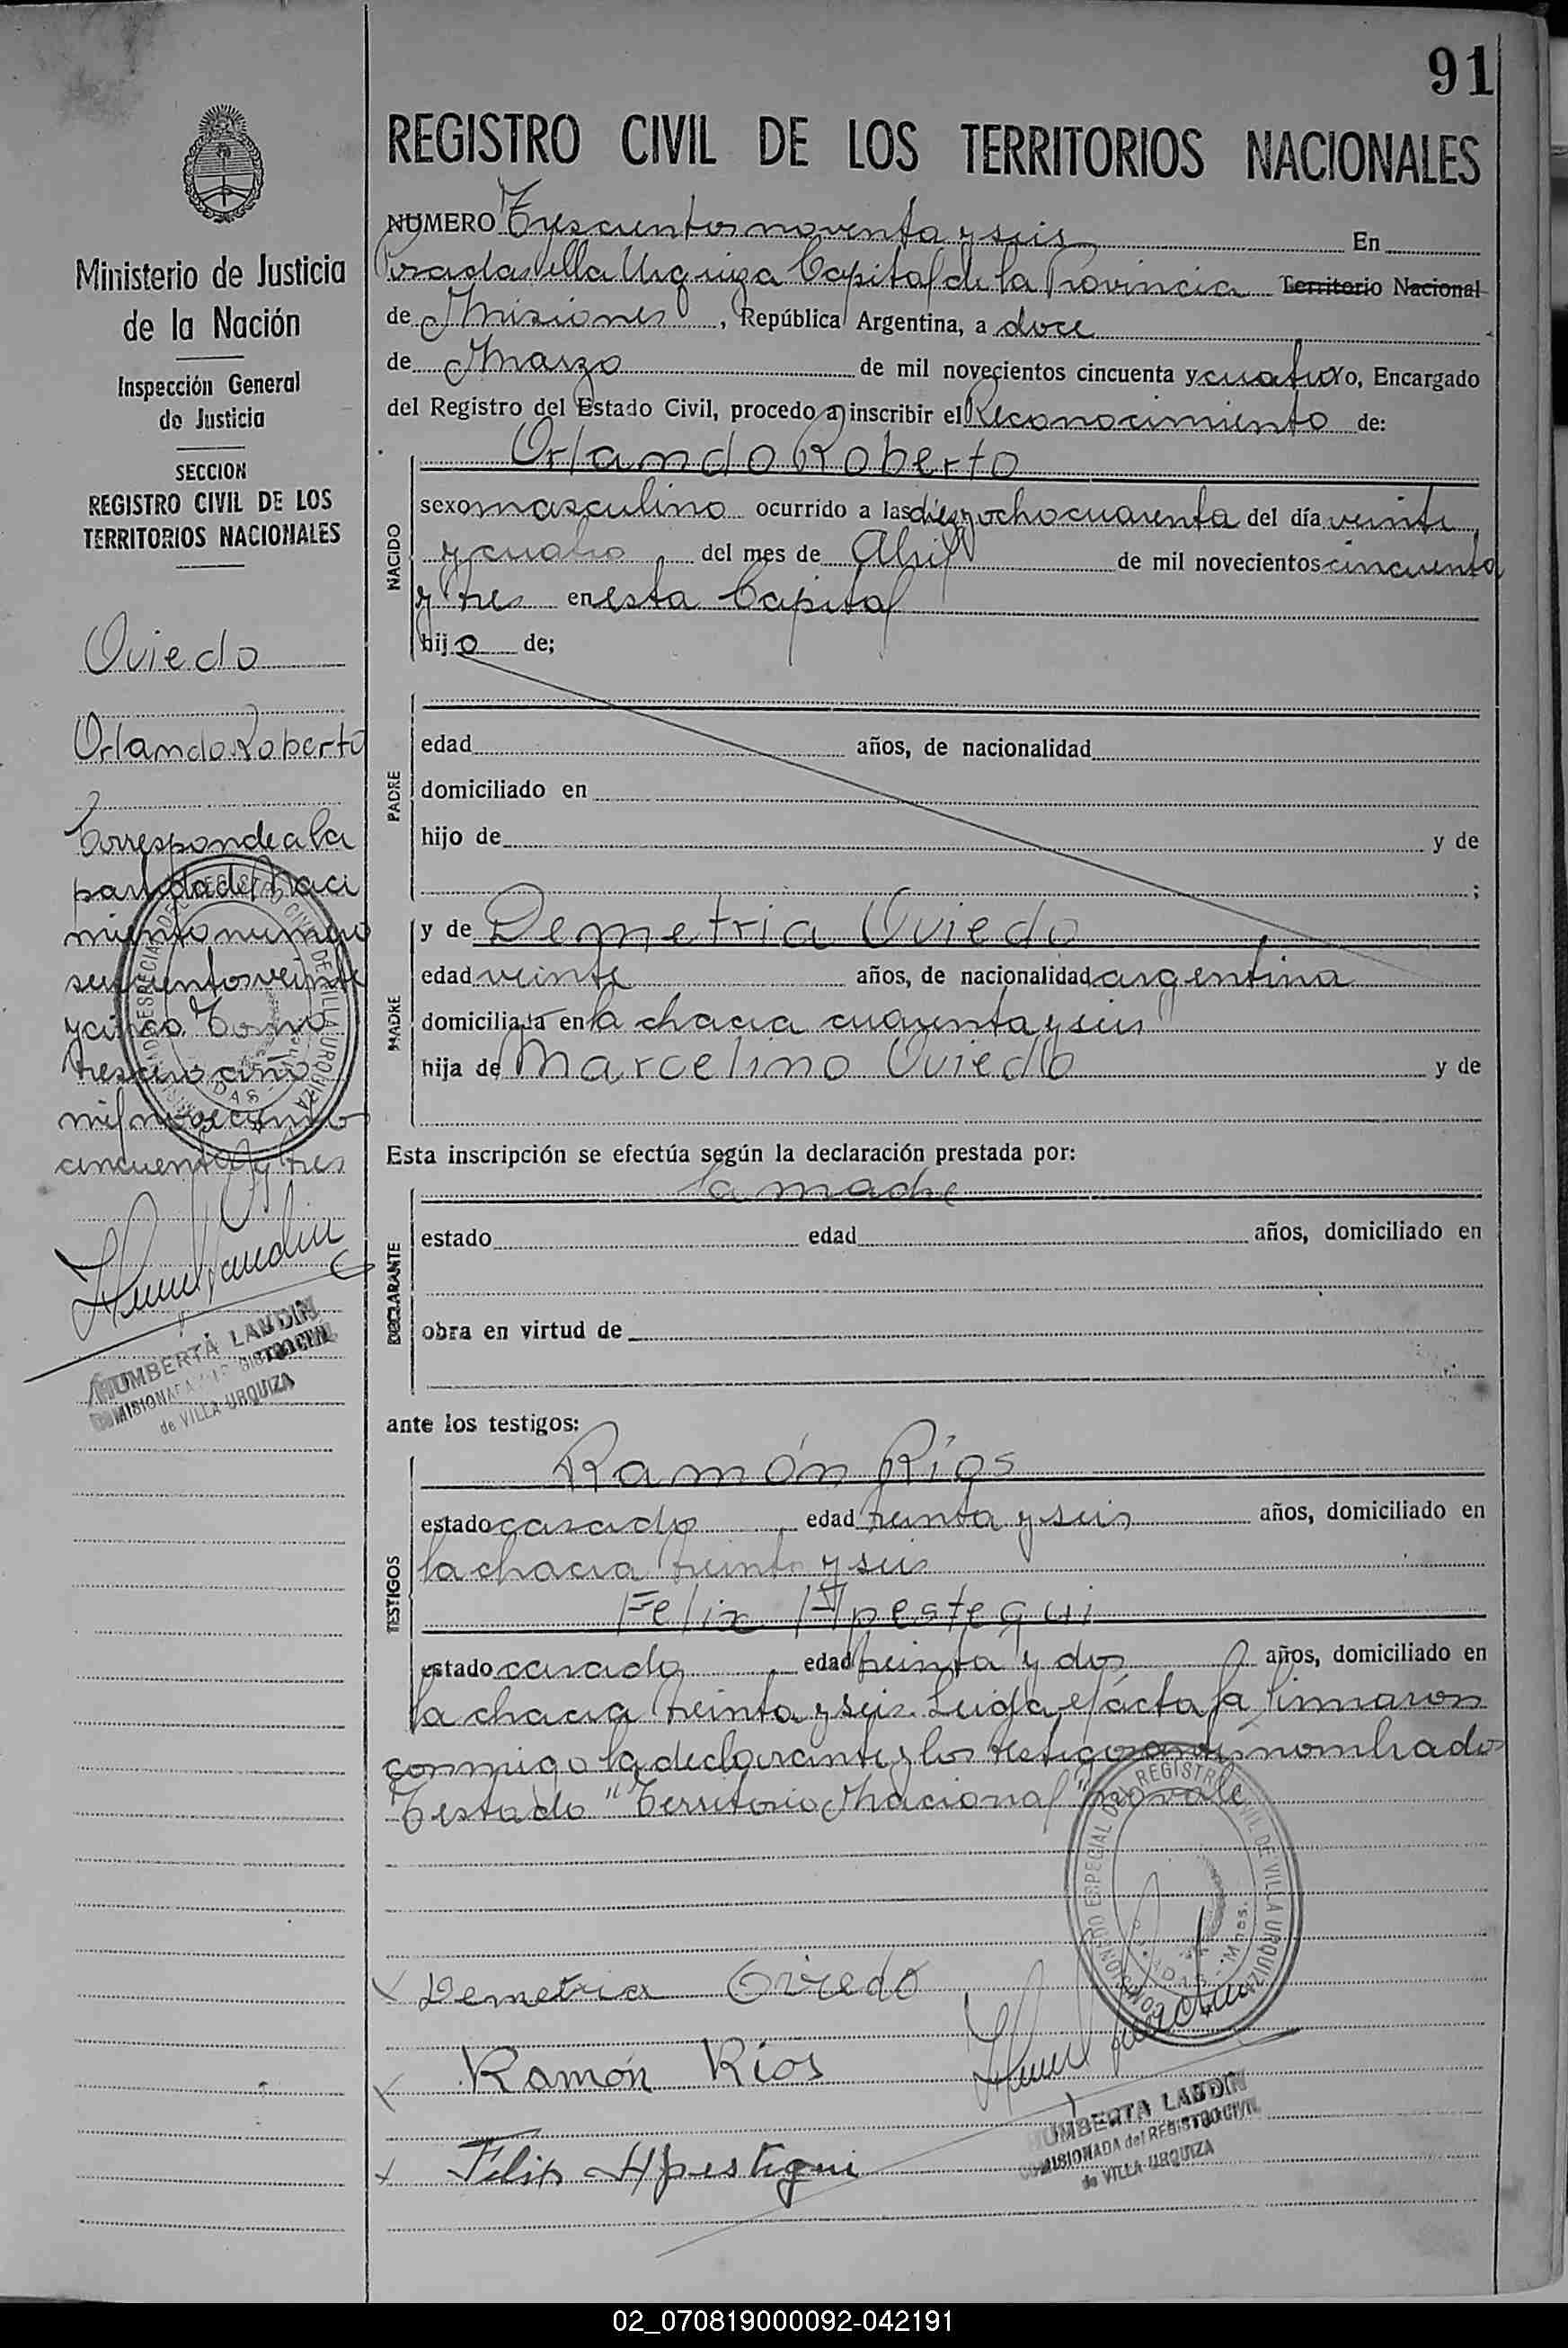 91
REGISTRO CIVIL DE LOS TERRITORIOS NACIONALES
Ministerio de Justicia
de la Nación
Inspección General
de Justicia
SECCION
REGISTRO CIVIL DE LOS
TERRITORIOS NACIONALES
Oviedo
Orlando Roberto
Corresponde a la
partida de naci
miento numero
seiscientos veinte
y cinco Tomo
tercero año
mil novecientos
cincuenta y tres
HUMBERTA LANDIN
COMISIONADA del REGISTRO CIVIL
de VILLA URQUIZA
NUMERO Trescientos noventa y seis En
Posadas Villa Urquiza Capital de la Provincia Territorio Nacional
de Misiones, República Argentina, a doce
de Marzo de mil novecientos cincuenta y cuatro Yo, Encargado
del Registro del Estado Civil, procedo a inscribir el Reconocimiento de:
Orlando Roberto
NACIDO
sexo masculino ocurrido a las diez y ocho cuarenta del día veinte
y cuatro del mes de Abril de mil novecientos cincuenta
y tres en esta Capital
hijo de;
PADRE
edad años, de nacionalidad
domiciliado en
hijo de y de
;
MADRE
y de Demetria Oviedo
edad veinte años, de nacionalidad argentina
domiciliada en la chacra cuarenta y seis
hija de Marcelino Oviedo y de
Esta inscripción se efectúa según la declaración prestada por:
la madre
DECLARANTE
estado edad años, domiciliado en
obra en virtud de
ante los testigos:
TESTIGOS
Ramón Ríos
estado casado edad treinta y seis años, domiciliado en
la chacra treinta y seis
Felix Apestegui
estado casado edad treinta y dos años, domiciliado en
la chacra treinta y seis. Leída el acta la firmaron
conmigo la declarante y los testigos antes nombrados
Testado "Territorio Nacional" no vale
REGISTRO CIVIL DE VILLA URQUIZA
Demetria Oviedo
Ramón Rios
Felix Apestegui
HUMBERTA LANDIN
COMISIONADA del REGISTRO CIVIL
de VILLA URQUIZA
02_070819000092-042191